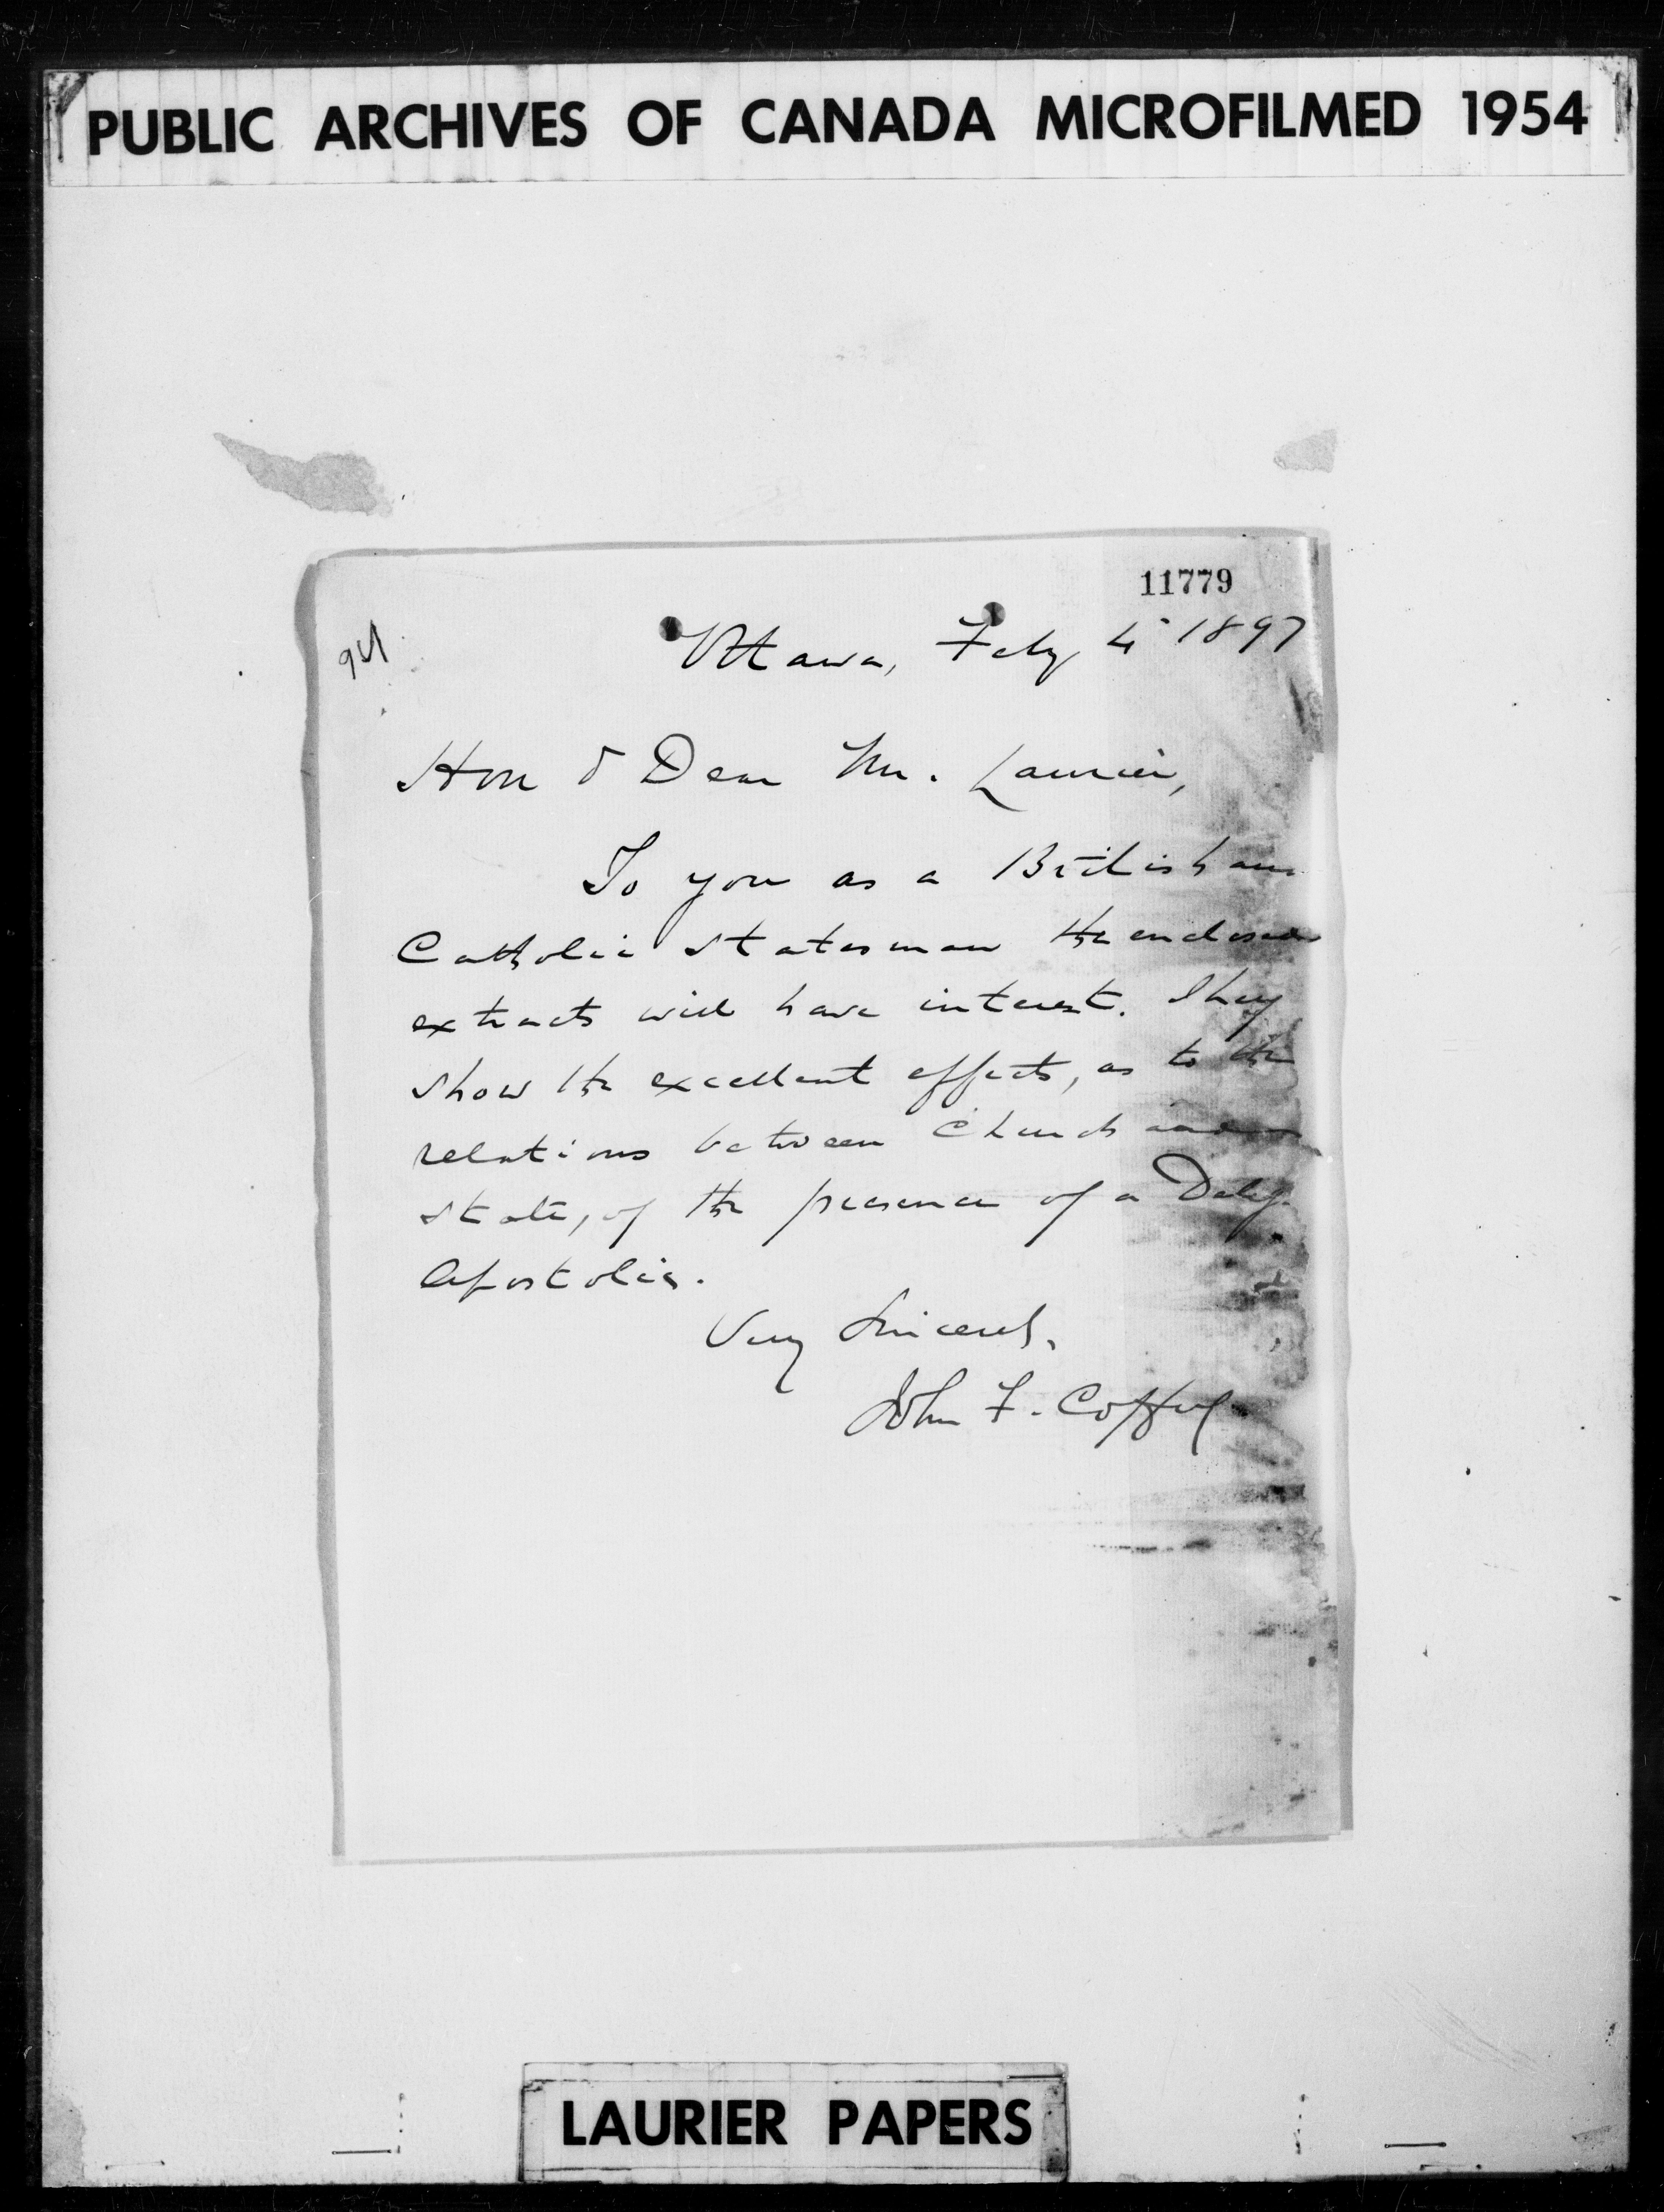 PUBLIC ARCHIVES OF CANADA MICROFILMED 1954
11779
Ottawa, Feby 4 1897
Hon & Dear Mr. Laurier,
To you as a British and
Catholic Statesman the enclosed
extracts will have interest. They
show the excellent effects, as to the
relations between Church and
State, of the presence of a Deleg.
Apostolic.
Very Sincerely,
John F. Coffey
LAURIER PAPERS